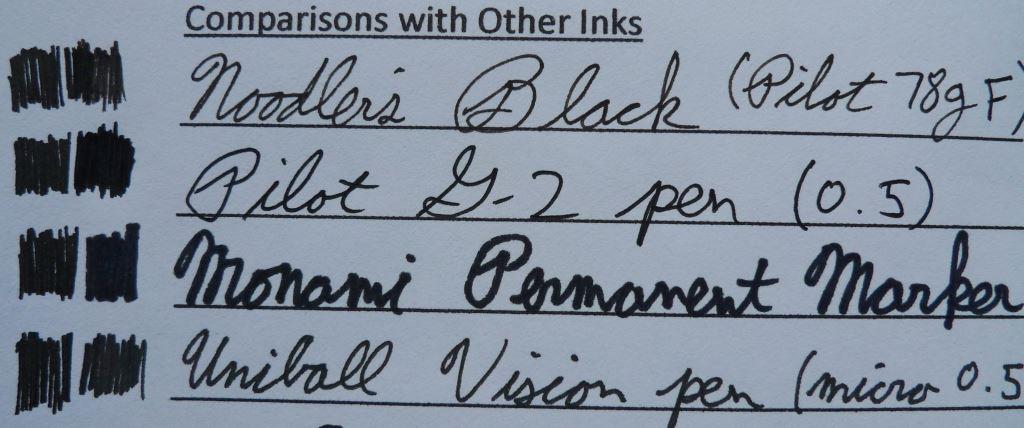 Comparisons with Other Inks
Noodler's Black (Pilot 78g F)
Pilot G-2 pen (0.5)
Monami Permanent Marker
Uniball Vision pen (micro 0.5